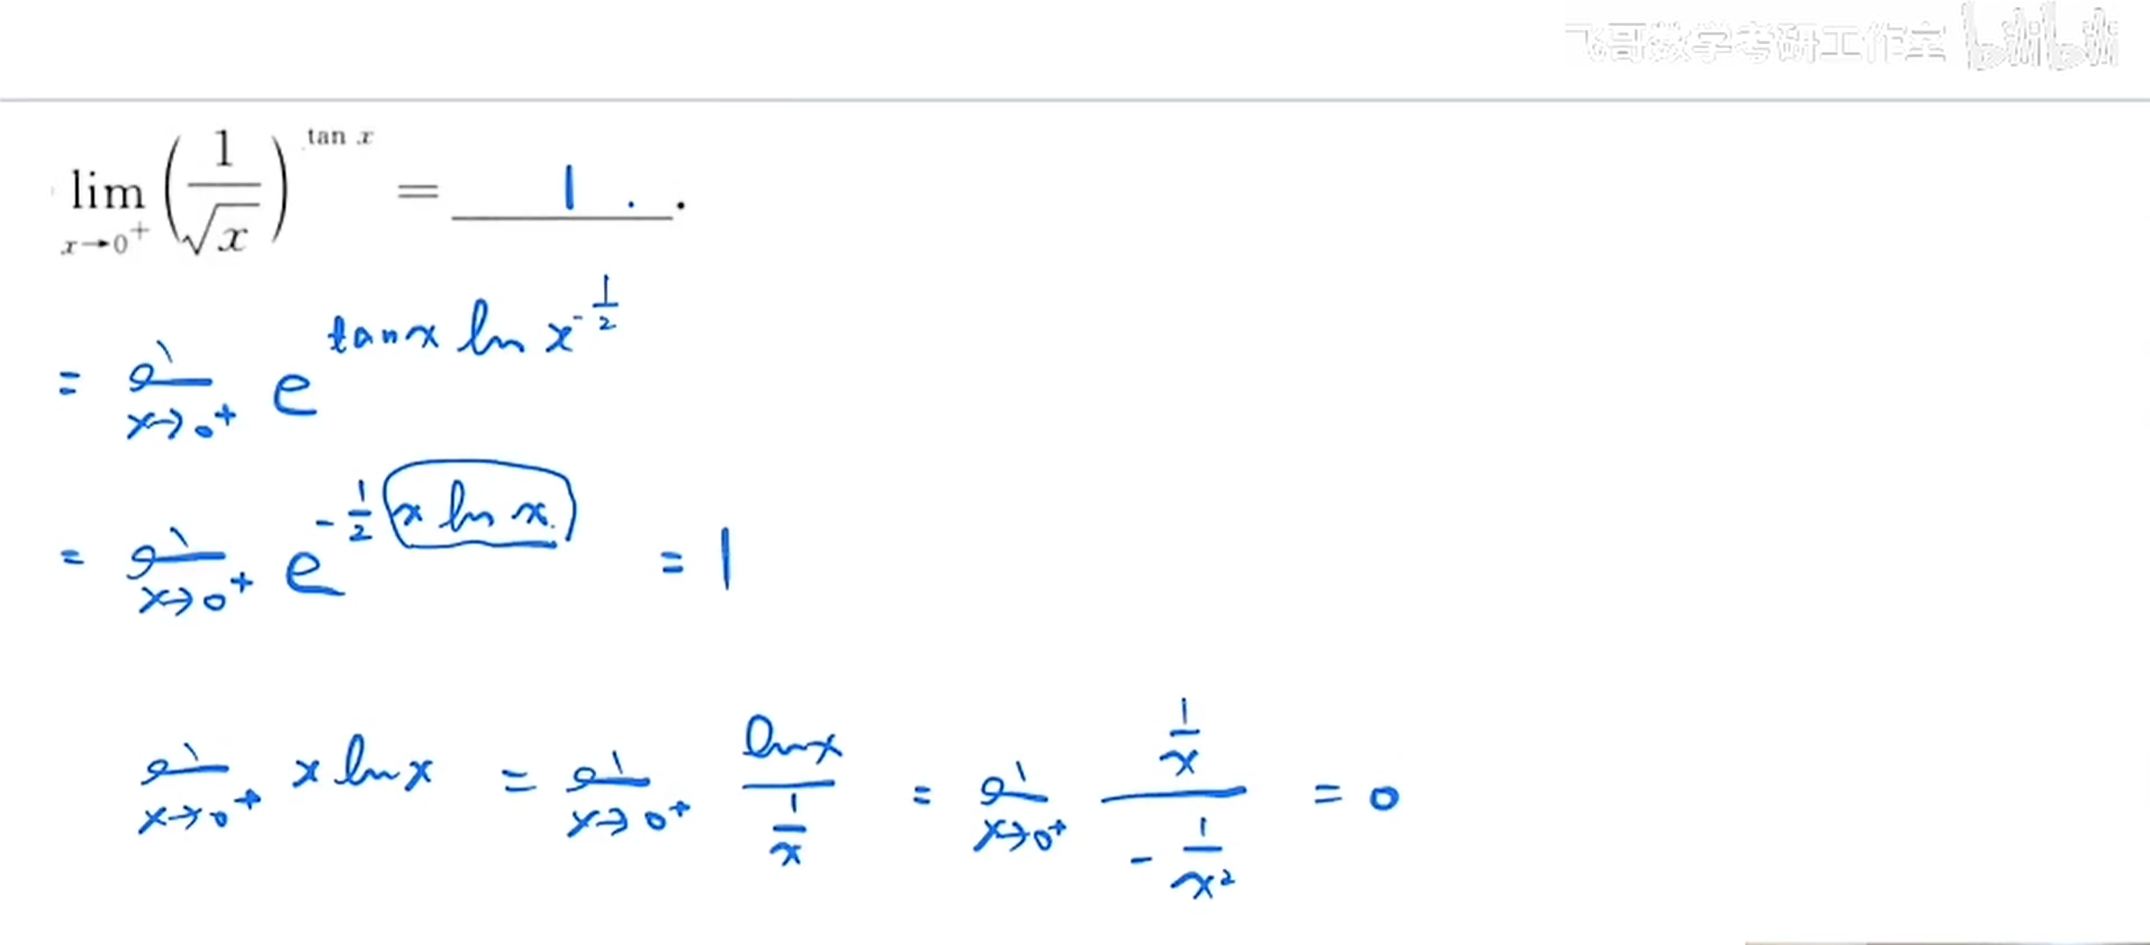 飞哥数学考研工作室 bilibili
lim x→0⁺ (1/√x)^(tan x) = 1 .
= lim x→0⁺ e^(tanx ln x^(-1/2))
= lim x→0⁺ e^(-1/2 x ln x) = 1
lim x→0⁺ x ln x = lim x→0⁺ lnx/(1/x) = lim x→0⁺ (1/x)/(-1/x²) = 0